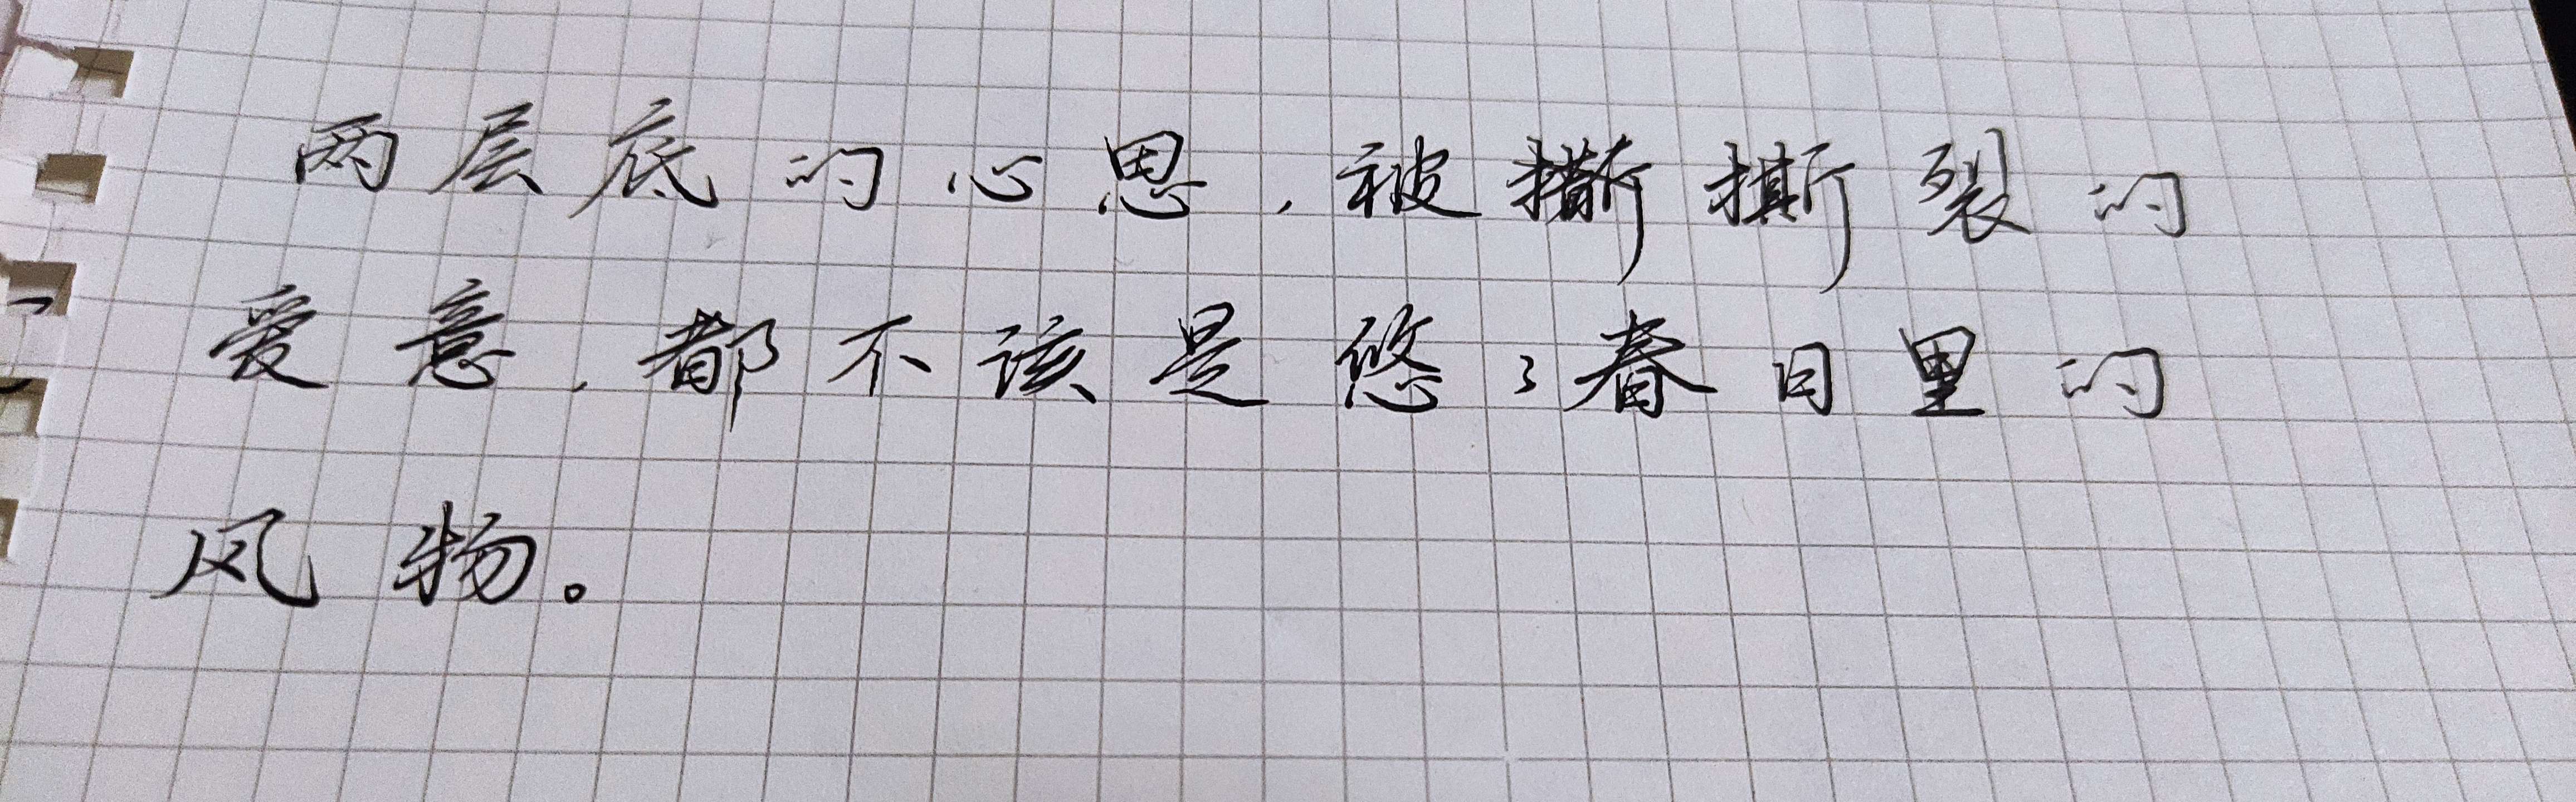 两层底的心思，被撕裂的
爱意，都不该是悠々春日里的
风物。